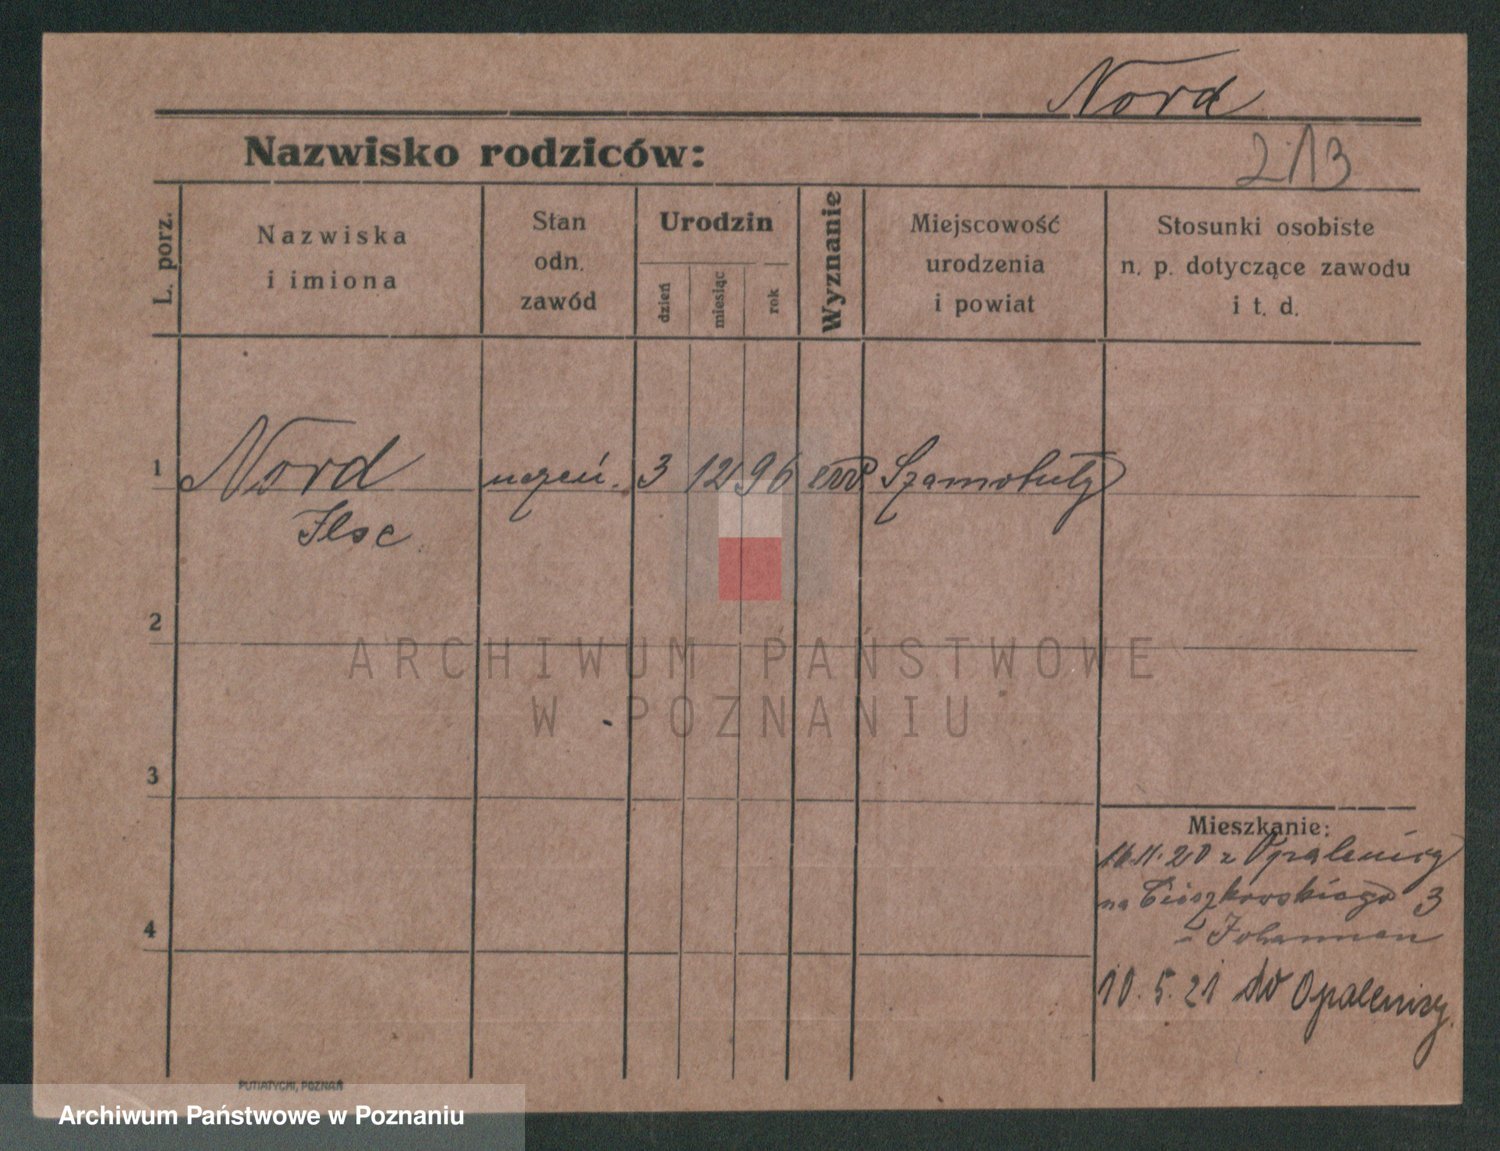 Nord
213
Nazwisko rodziców:
L. porz.
Nazwiska
i imiona
Stan
odn.
zawód
Urodzin
dzień
miesiąc
rok
Wyznanie
Miejscowość
urodzenia
i powiat
Stosunki osobiste
n. p. dotyczące zawodu
i t. d.
1 Nord uczeń. 3 12 96 Szamotuły
Ilse
2
ARCHIWUM PAŃSTWOWE
W POZNANIU
3
Mieszkanie:
16.11.20 z Opalenicy
na Cieszkowskiego 3
Johannan
4
10.5.21 do Opalenicy.
PUTIATYCKI, POZNAŃ
Archiwum Państwowe w Poznaniu